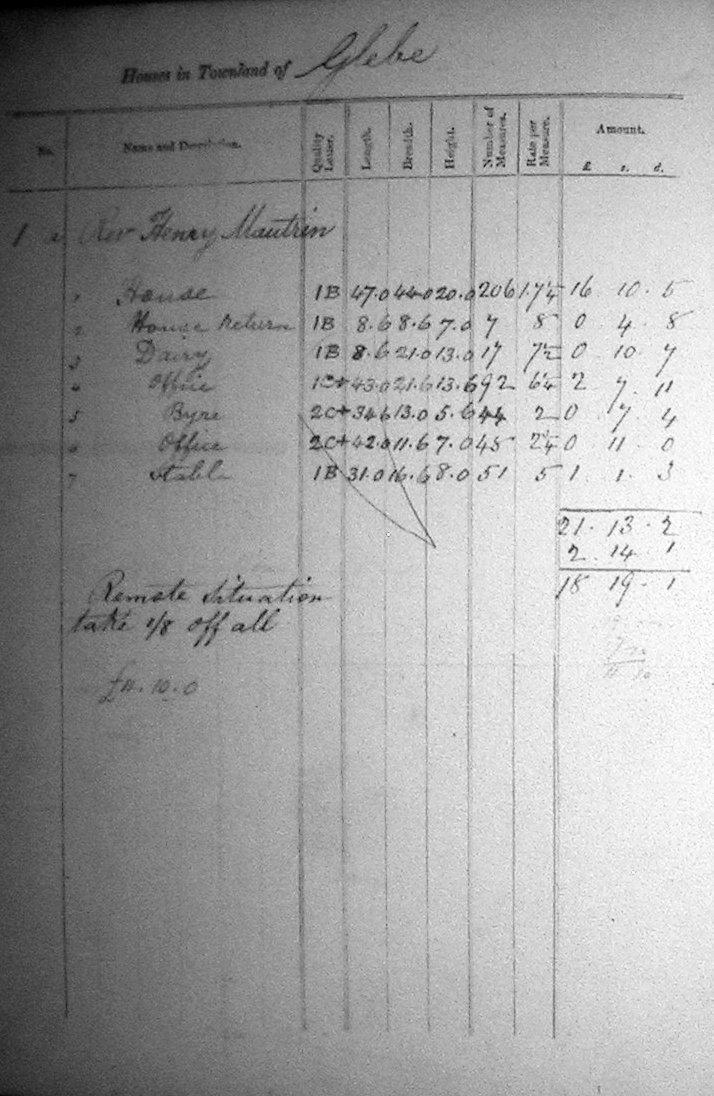 Houses in Townland of Glebe
No. Name and Description. Quality Letter. Length. Breadth. Height. Number of Measures. Rate per Measure. Amount.
£ s. d.
1 a Rev Henry Mautrin
1 House 1B 47.0 44.0 20.0 206 1.7¼ 16 10. 5
2 House Return 1B 8.6 8.6 7.0 7 8 0. 4. 8
3 Dairy 1B 8.6 21.0 13.0 17 7½ 0. 10. 7
4 Office 1C+ 43.0 21.6 13.6 92 6¼ 2. 7. 11
5 Byre 2C+ 34.6 13.0 5.6 44 2 0. 7 4
6 Office 2C+ 42.0 11.6 7.0 45 2¼ 0 11. 0
7 Stable 1B 31.0 16.6 8.0 51 5 1. 1. 3
21. 13. 2
2. 14. 1
18 19. 1
Remote situation
take 1/8 off all
£11. 10. 0